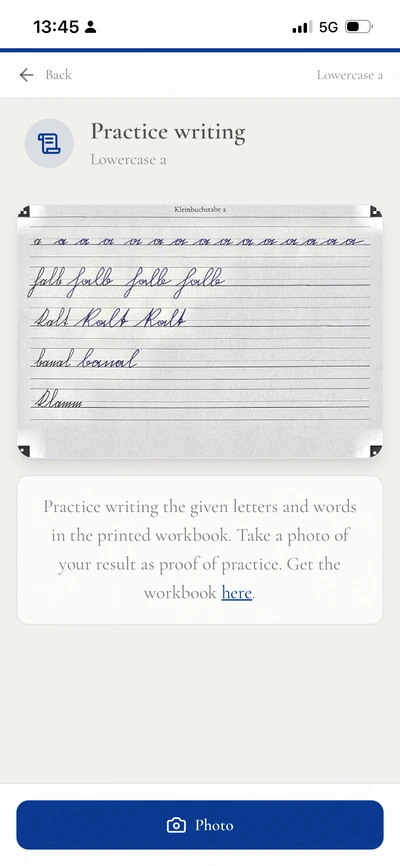 13:45 5G
Back Lowercase a
Practice writing
Lowercase a
Kleinbuchstabe a
a a a a a a a a a a a a a a a
falb falb falb falb
Kalt Kalt Kalt
banal banal
Klamm
Practice writing the given letters and words
in the printed workbook. Take a photo of
your result as proof of practice. Get the
workbook here.
Photo